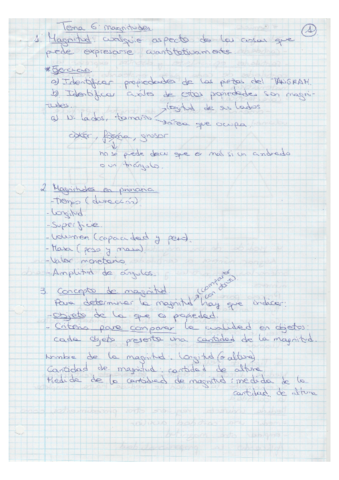 Tema 6: magnitudes
1
1. Magnitud: cualquier aspecto de las cosas que
puede expresarse cuantitativamente
* Ejercicio
a) Identificar propiedades de las piezas del TANGRAM
b) Identificar cuáles de estas propiedades son magni-
tudes.
a) Nº lados, tamaño longitud de sus lados
área que ocupa
color, forma, grosor
no se puede decir que es más si un cuadrado
o un triángulo.
2. Magnitudes en primaria
- Tiempo (duración)
- Longitud
- Superficie
- Volumen (capacidad y
- Masa (peso y masa)
- Valor monetario
- Amplitud de ángulos.
3. Concepto de magnitud
Para determinar la magnitud hay que conocer:
- objeto de la que es propiedad.
- Criterios para comparar la cualidad en objetos:
cada objeto presenta una cantidad de la magnitud.
Nombre de la magnitud: longitud (o altura)
Cantidad de magnitud: cantidad de altura
Medida de la cantidad de magnitud: medida de la
cantidad de altura